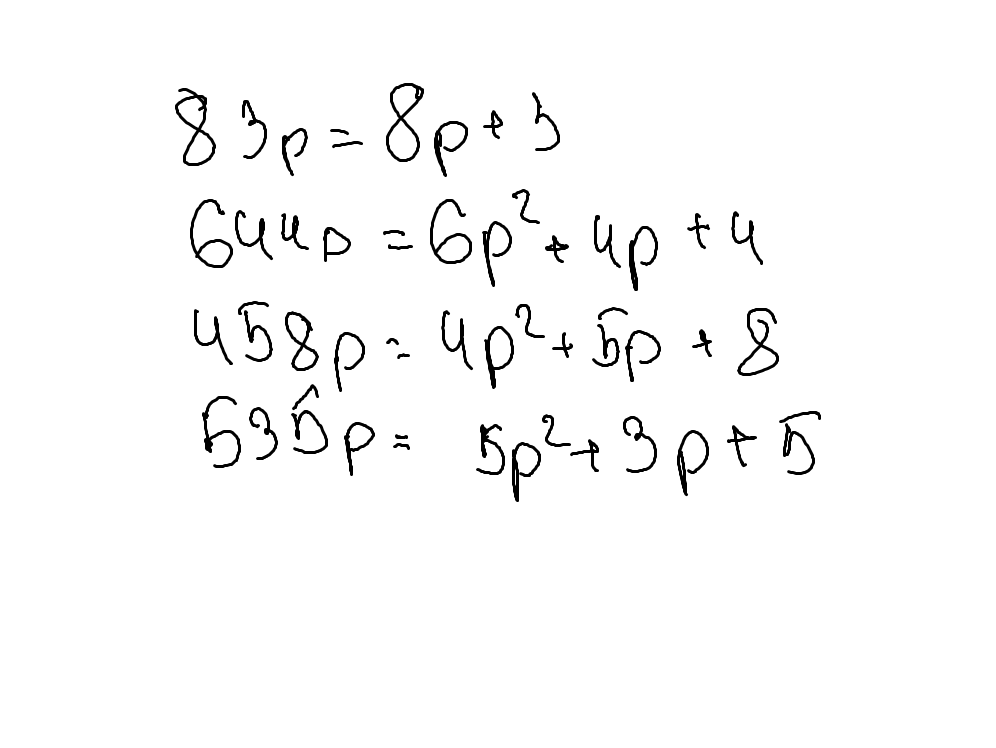 83p = 8p + 3
644p = 6p² + 4p + 4
458p = 4p² + 5p + 8
535p = 5p² + 3p + 5